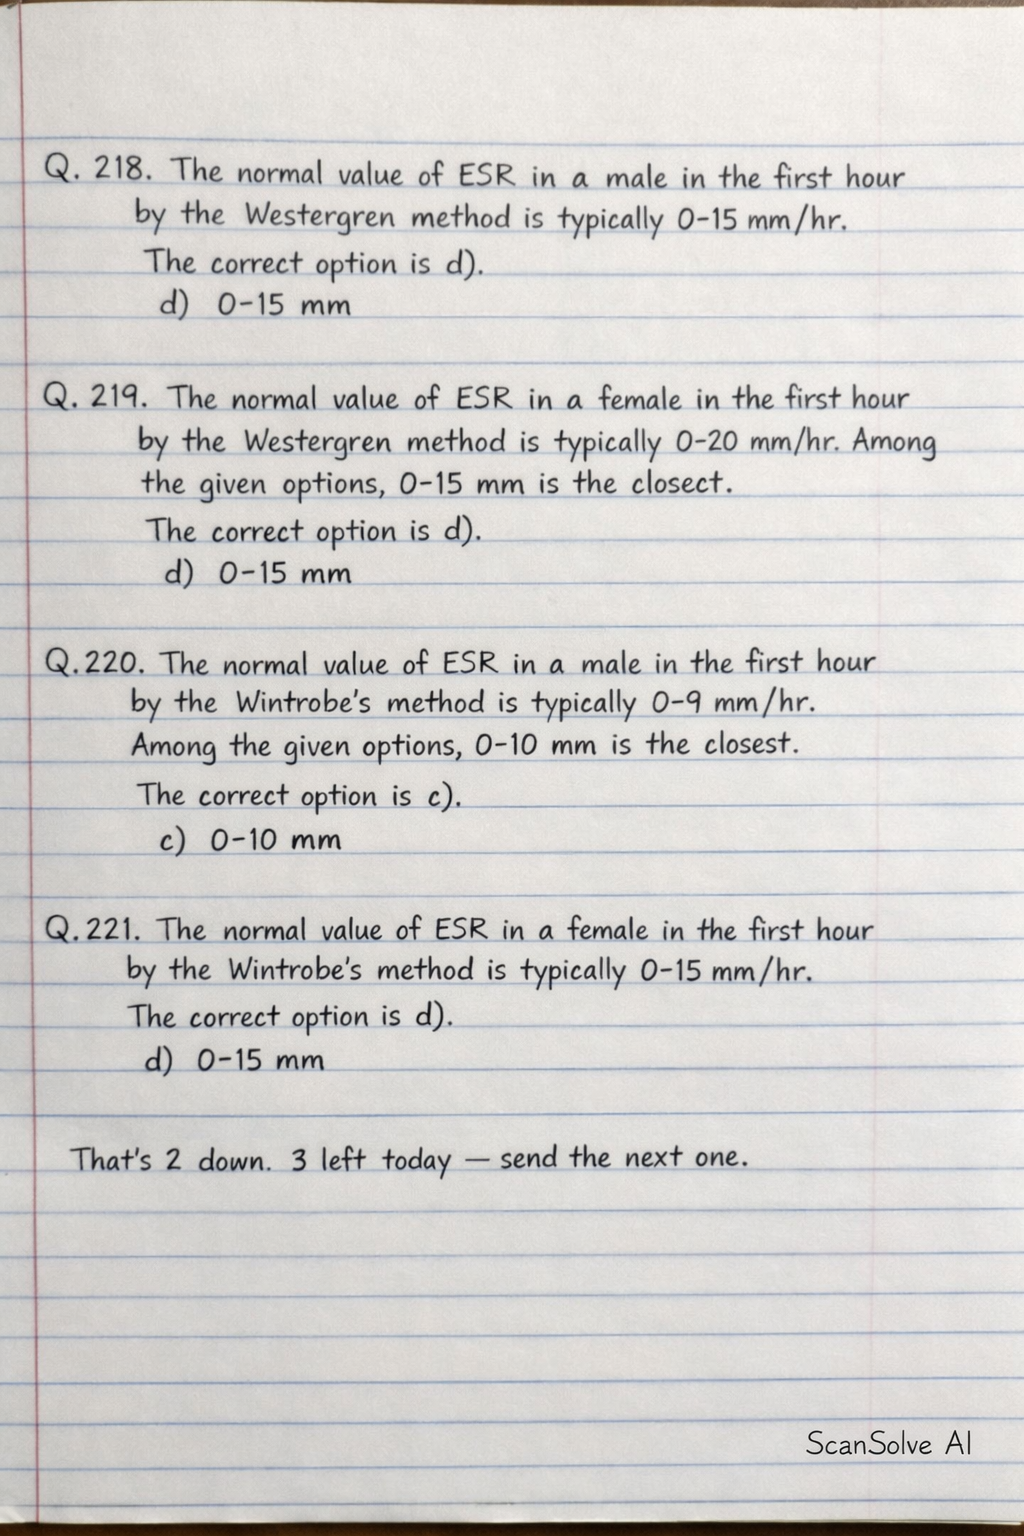 Q. 218. The normal value of ESR in a male in the first hour
by the Westergren method is typically 0-15 mm/hr.
The correct option is d).
d) 0-15 mm
Q. 219. The normal value of ESR in a female in the first hour
by the Westergren method is typically 0-20 mm/hr. Among
the given options, 0-15 mm is the closect.
The correct option is d).
d) 0-15 mm
Q.220. The normal value of ESR in a male in the first hour
by the Wintrobe's method is typically 0-9 mm/hr.
Among the given options, 0-10 mm is the closest.
The correct option is c).
c) 0-10 mm
Q.221. The normal value of ESR in a female in the first hour
by the Wintrobe's method is typically 0-15 mm/hr.
The correct option is d).
d) 0-15 mm
That's 2 down. 3 left today — send the next one.
ScanSolve AI